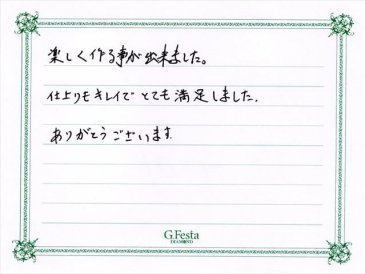 楽しく作る事が出来ました。
仕上りもキレイでとても満足しました.
ありがとうございます.
G.Festa
DIAMOND